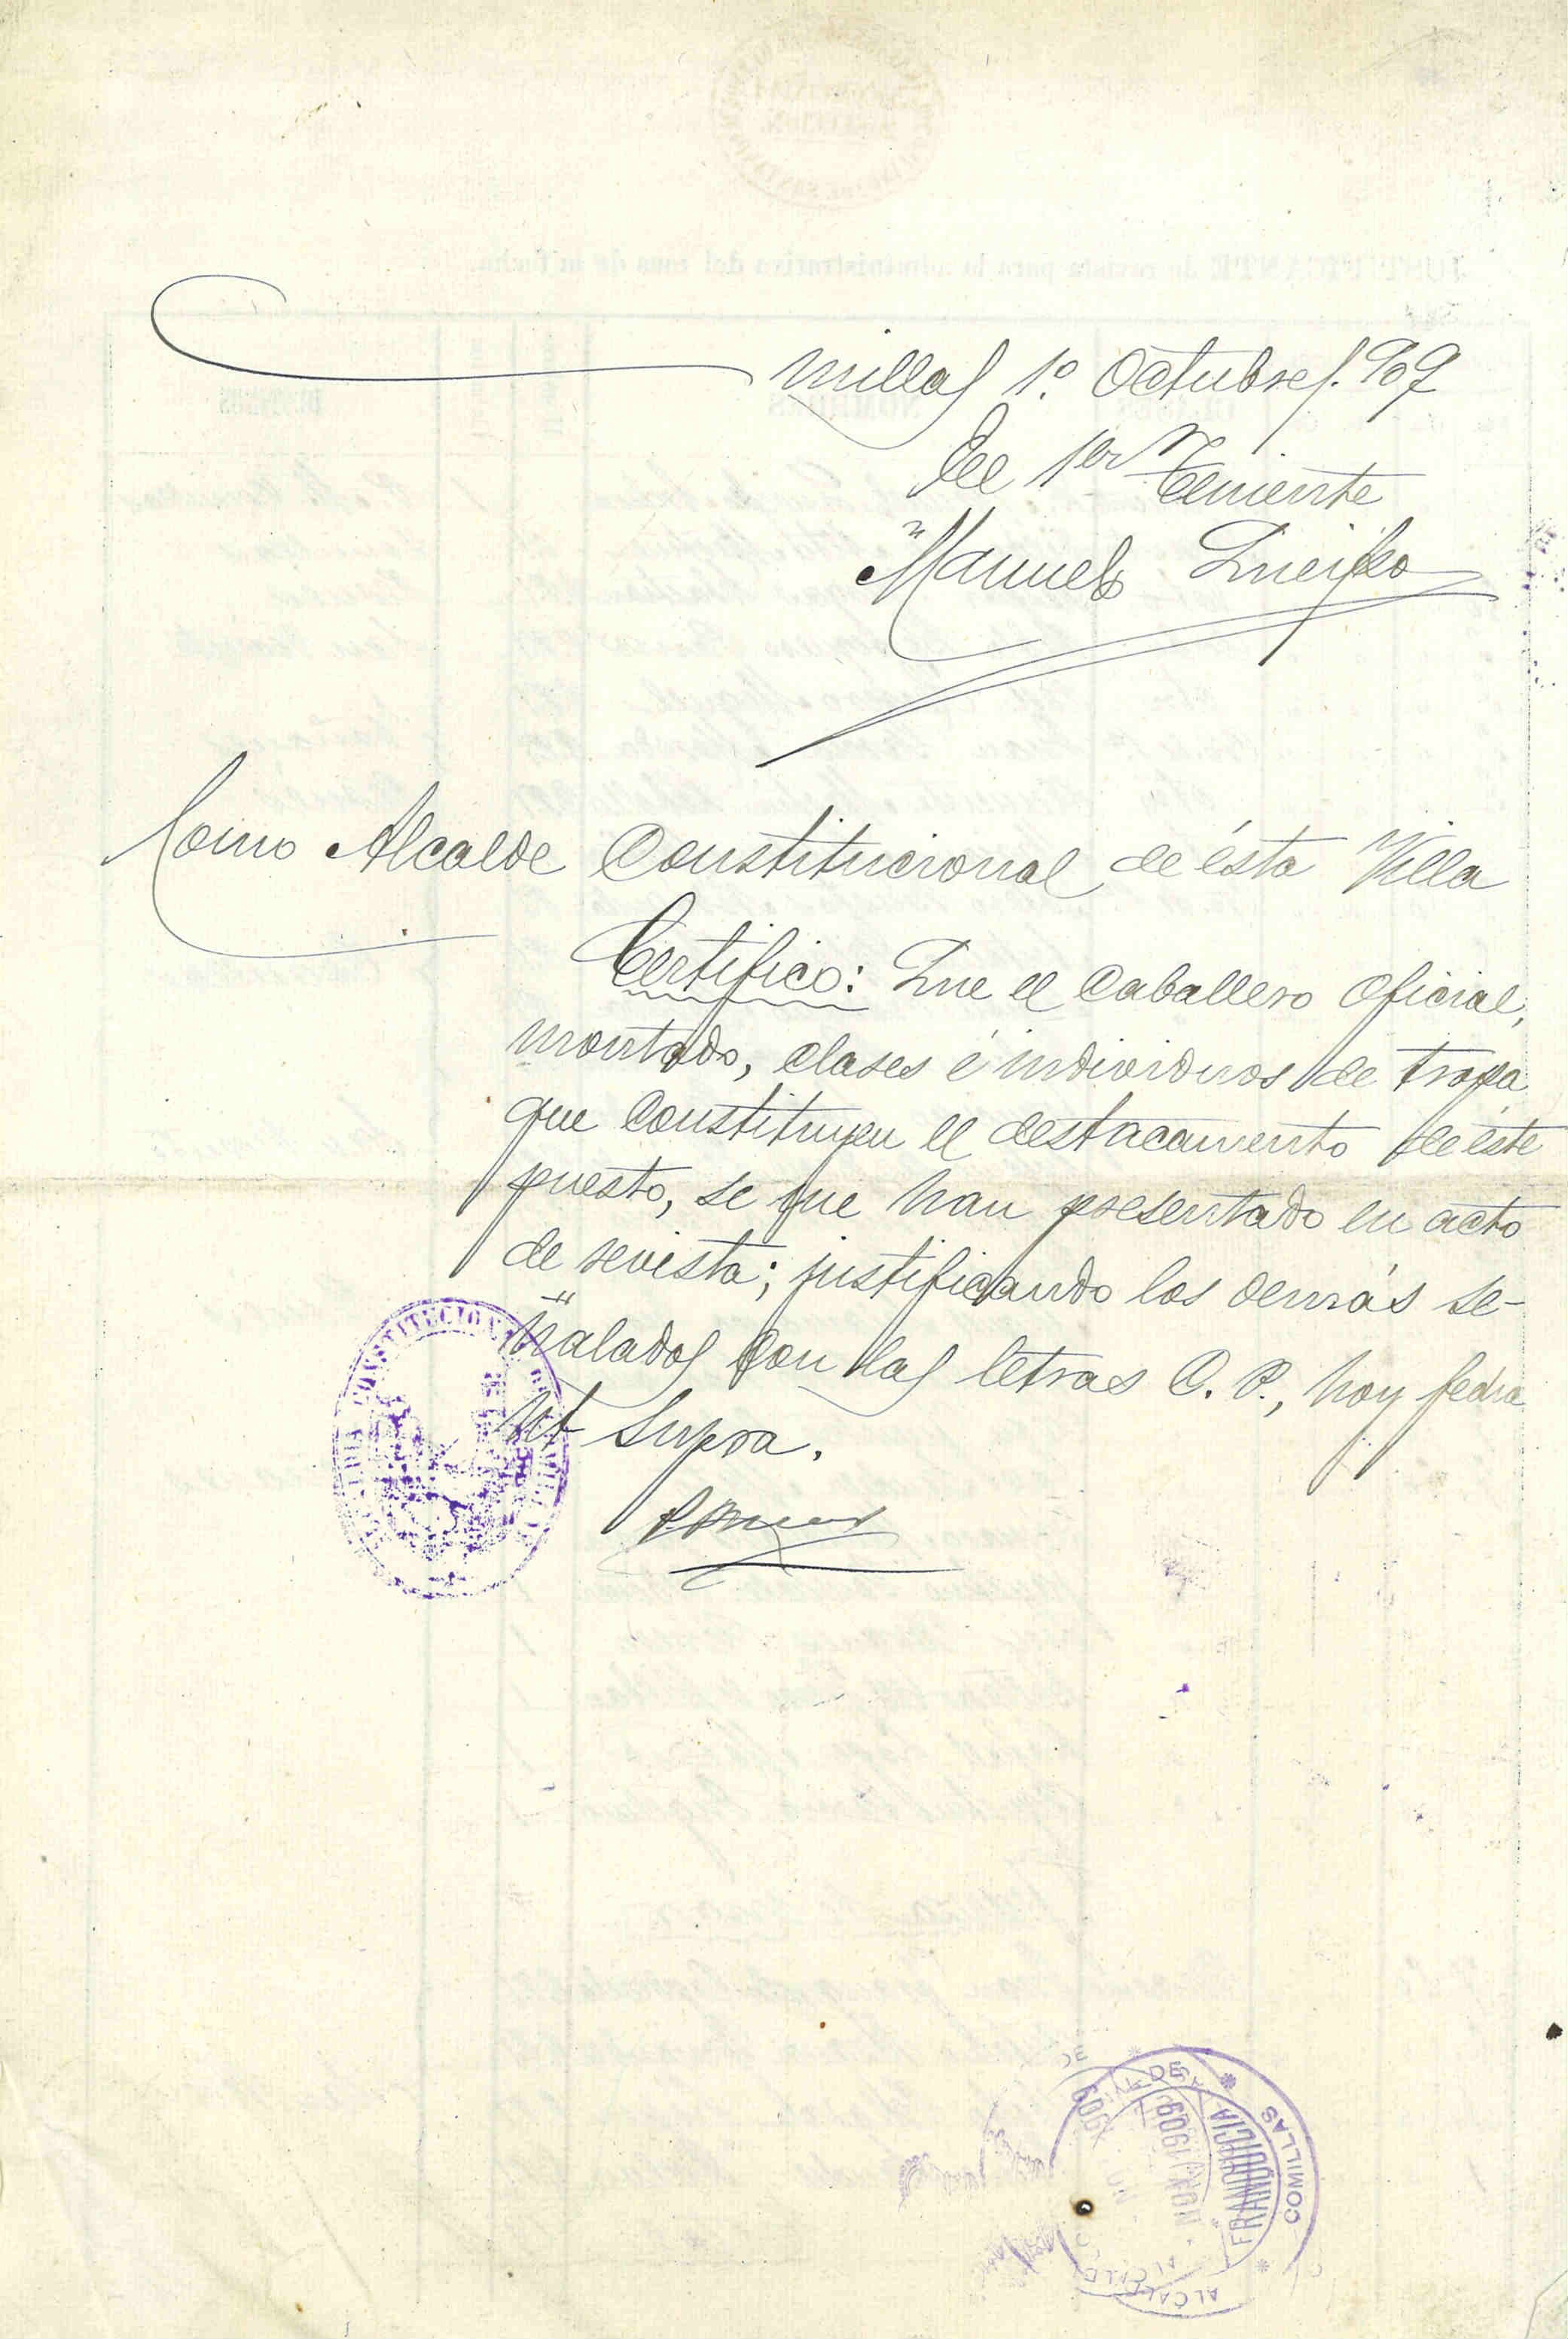 millas 1º Octubre 909
El 1er Teniente
Manuel Queipo
Como Alcalde Constitucional de ésta Villa
Certifico: Que el Caballero Oficial,
montado, clases é individuos de tropa
que constituyen el destacamento de éste
puesto, se que han presentado en acto
de revista; justificando los demás se-
ñalados con las letras C. P., hoy fecha
Ut Supra.
CONSTITUCION
FRANQUICIA
COMILLAS
1909
ALCALD